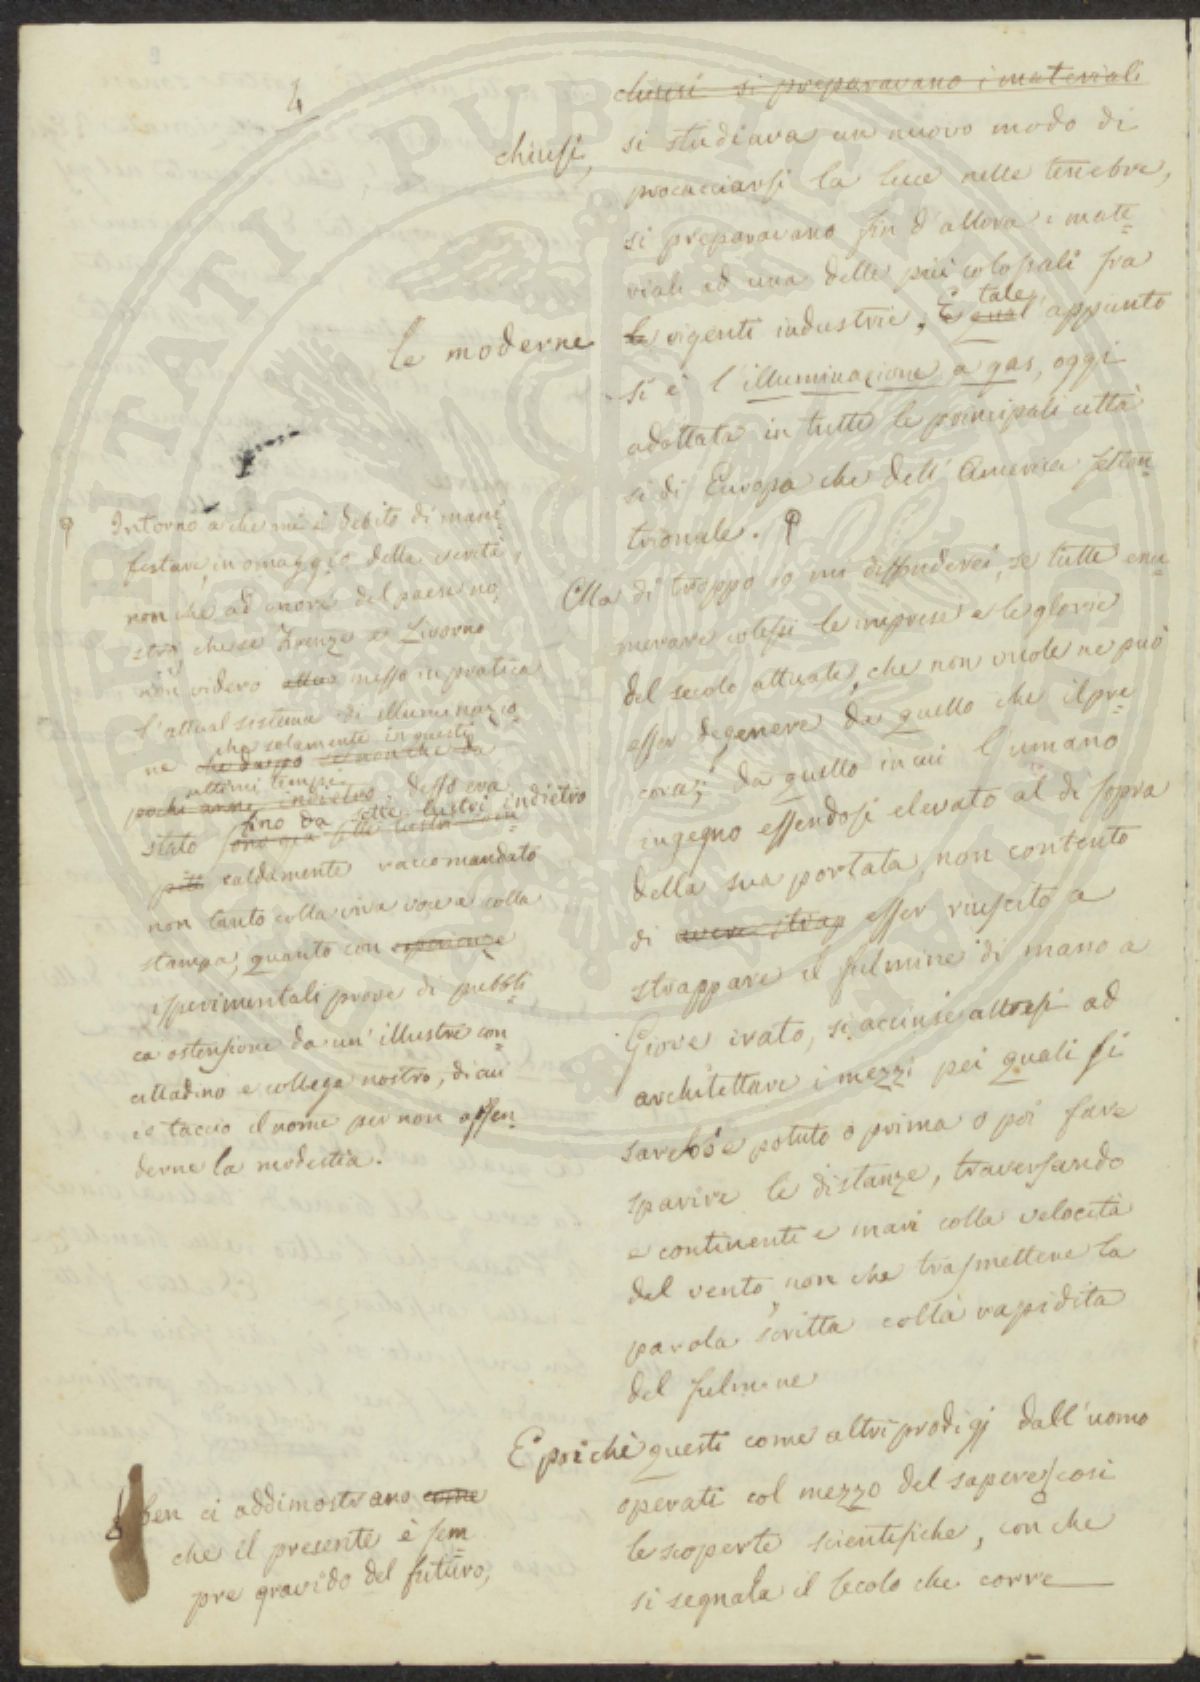 4
chiusi si preparavano i materiali
chiusi, si studiava un nuovo modo di
procacciarsi la luce nelle tenebre,
si preparavano fin d'allora i mate=
riali ad una delle più colossali fra
le moderne le vigenti industrie. E tale
qual appunto
si è l'illuminazione a gas, oggi
adottata in tutte le principali città
sì di Europa che dell'America setten=
trionale. φ
Ma di troppo io mi diffonderei, se tutte enu=
merare volessi le imprese e le glorie
del secolo attuale, che non vuole ne può
esser degenere da quello che il pre=
corse; da quello in cui l'umano
ingegno essendosi elevato al di sopra
della sua portata, non contento
di avere strap esser riuscito a
strappare il fulmine di mano a
Giove irato, si accinse altresì ad
architettare i mezzi pei quali si
sarebbe potuto o prima o poi fare
sparire le distanze, traversando
e continenti e mari colla velocità
del vento, non che trasmettere la
parola scritta colla rapidità
del fulmine
E poichè questi come altri prodigj dall'uomo
operati col mezzo del sapere, così
le scoperte scientifiche, con che
si segnala il secolo che corre
φ Intorno a che mi è debito di mani=
festare, in omaggio della verità,
non che ad onore del paese no=
stro, che se Firenze e Livorno
non videro attuo messo in pratica
l'attual sistema di illuminazio=
ne che solamente in questi
che dappo se non che da
ultimi tempi
pochi anni indietro, desso era
stato fino da sette lustri indietro
sono già sette lustri
più caldamente raccomandato
non tanto colla viva voce e colla
stampa, quanto con esperienze
esperimentali prove di pubbli=
ca ostensione da un'illustre con=
cittadino e collega nostro, di cui
io taccio il nome per non offen=
derne la modestia.
ben ci addimostrano come
che il presente è sem=
pre gravido del futuro,
BERITATI PUBLICAE